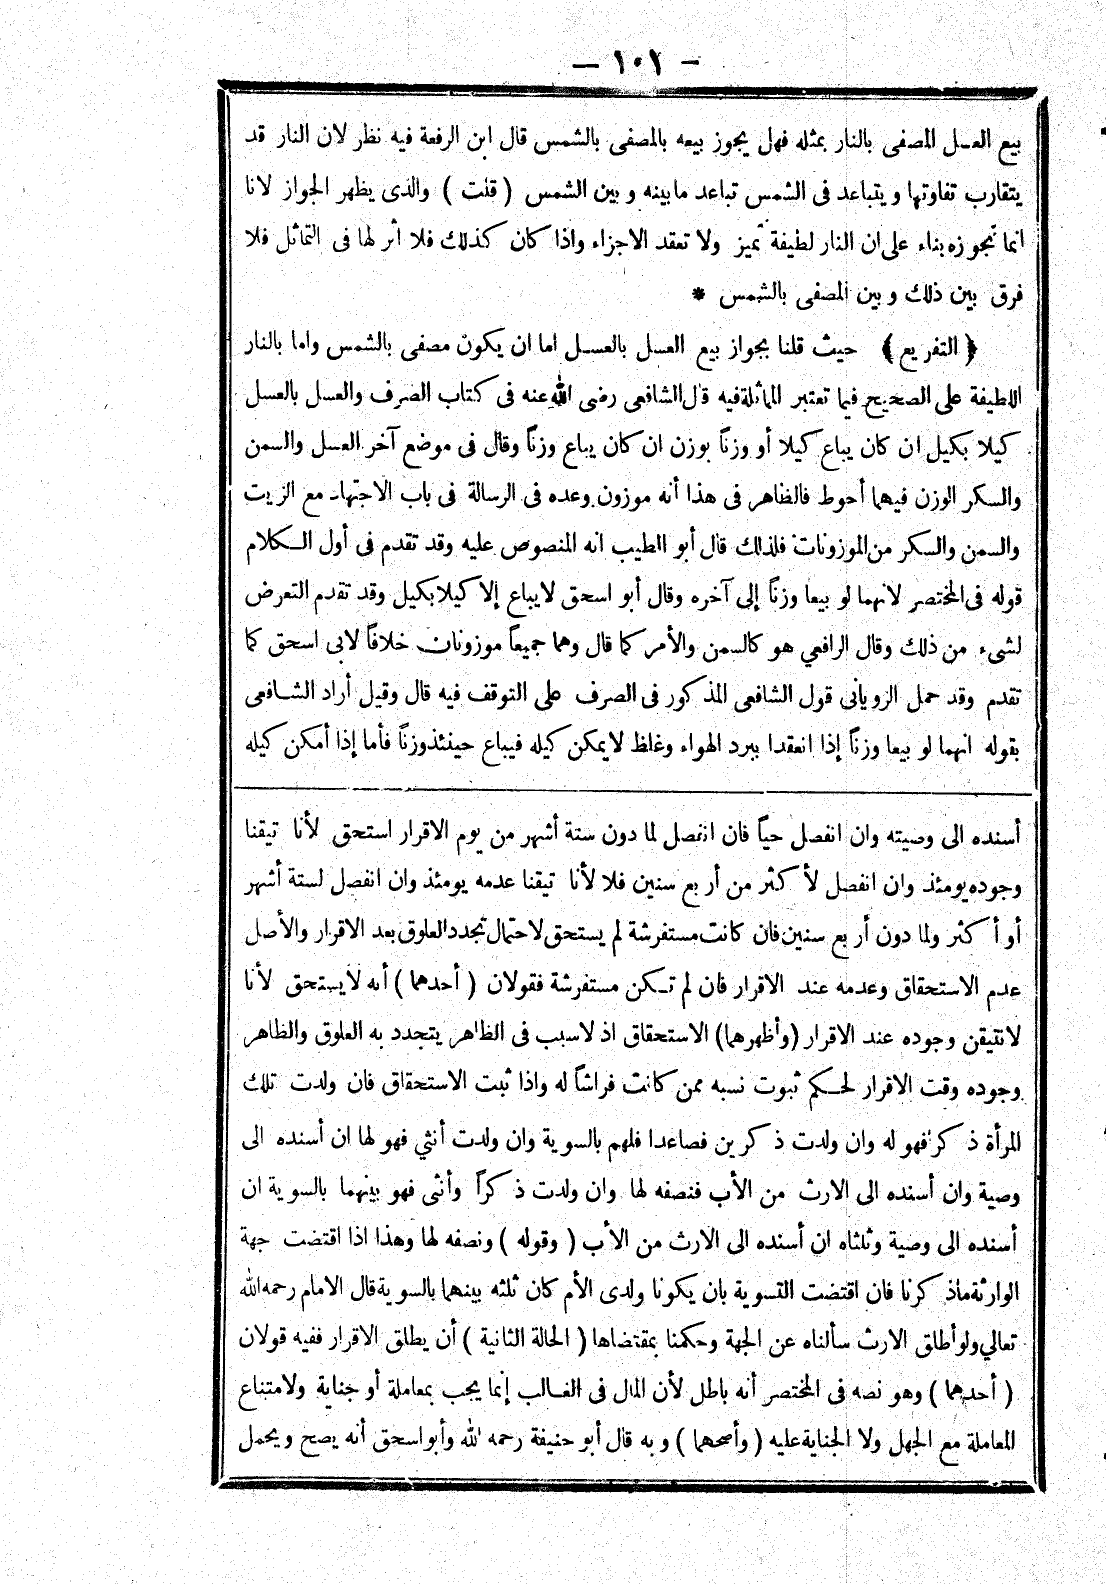 - ١٠١ -
بيع العسل المصفى بالنار بمثله فهل يجوز بيعه بالمصفى بالشمس قال ابن الرفعة فيه نظر لان النار قد
يتقارب تفاوتها ويتباعد فى الشمس تباعد مابينه وبين الشمس ( قلت ) والذى يظهر الجواز لانا
انما نجوزه بناء على ان النار لطيفة تميز ولا تعقد الاجزاء واذا كان كذلك فلا اثر لها فى التماثل فلا
فرق بين ذلك وبين المصفى بالشمس *
﴿ التفريع ﴾ حيث قلنا بجواز بيع العسل بالعسل اما ان يكون مصفى بالشمس واما بالنار
اللطيفة على الصحيح فيما تعتبر المماثلة فيه قال الشافعى رضى الله عنه فى كتاب الصرف والعسل بالعسل
كيلا بكيل ان كان يباع كيلا أو وزناً بوزن ان كان يباع وزناً وقال فى موضع آخر العسل والسمن
والسكر الوزن فيهما أحوط فالظاهر فى هذا أنه موزون وعده فى الرسالة فى باب الاجتهاد مع الزيت
والسمن والسكر من الموزونات فلذلك قال أبو الطيب انه المنصوص عليه وقد تقدم فى أول الكلام
قوله فى المختصر لانهما لو بيعا وزناً إلى آخره وقال أبو اسحق لايباع إلا كيلا بكيل وقد تقدم التعرض
لشىء من ذلك وقال الرافعي هو كالسمن والأمر كما قال وهما جميعاً موزونان خلافاً لابى اسحق كما
تقدم وقد حمل الرويانى قول الشافعى المذكور فى الصرف على التوقف فيه قال وقيل أراد الشافعى
بقوله انهما لو بيعا وزناً إذا انعقدا ببرد الهواء وغلظ لايمكن كيله فيباع حينئذ وزناً فأما إذا أمكن كيله
أسنده الى وصيته وان انفصل حياً فان انفصل لما دون ستة أشهر من يوم الاقرار استحق لأنا تيقنا
وجوده يومئذ وان انفصل لأكثر من أربع سنين فلا لأنا تيقنا عدمه يومئذ وان انفصل لستة أشهر
أو أكثر ولما دون أربع سنين فان كانت مستفرشة لم يستحق لاحتمال تجدد العلوق بعد الاقرار والأصل
عدم الاستحقاق وعدمه عند الاقرار فان لم تكن مستفرشة فقولان ( أحدهما ) أنه لايستحق لأنا
لانتيقن وجوده عند الاقرار (وأظهرهما) الاستحقاق اذ لاسبب فى الظاهر يتجدد به العلوق والظاهر
وجوده وقت الاقرار لحكم ثبوت نسبه ممن كانت فراشاً له واذا ثبت الاستحقاق فان ولدت تلك
المرأة ذكر فهو له وان ولدت ذكرين فصاعدا فلهم بالسوية وان ولدت أنثي فهو لها ان أسنده الى
وصية وان أسنده الى الارث من الأب فنصفه لها وان ولدت ذكراً وأنثى فهو بينهما بالسوية ان
أسنده الى وصية وثلثاه ان أسنده الى الارث من الأب ( وقوله ) ونصفه لها وهذا اذا اقتضت جهة
الوارثة ماذكرنا فان اقتضت التسوية بان يكونا ولدى الأم كان ثلثه بينهما بالسوية قال الامام رحمه الله
تعالي ولو أطلق الارث سألناه عن الجهة وحكمنا بمقتضاها ( الحالة الثانية ) أن يطلق الاقرار ففيه قولان
( أحدهما ) وهو نصه فى المختصر أنه باطل لأن المال فى الغالب إنما يجب بمعاملة أو جناية ولامتناع
المعاملة مع الجهل ولا الجناية عليه ( وأصحهما ) وبه قال أبو حنيفة رحمه الله وأبو اسحق أنه يصح ويحمل